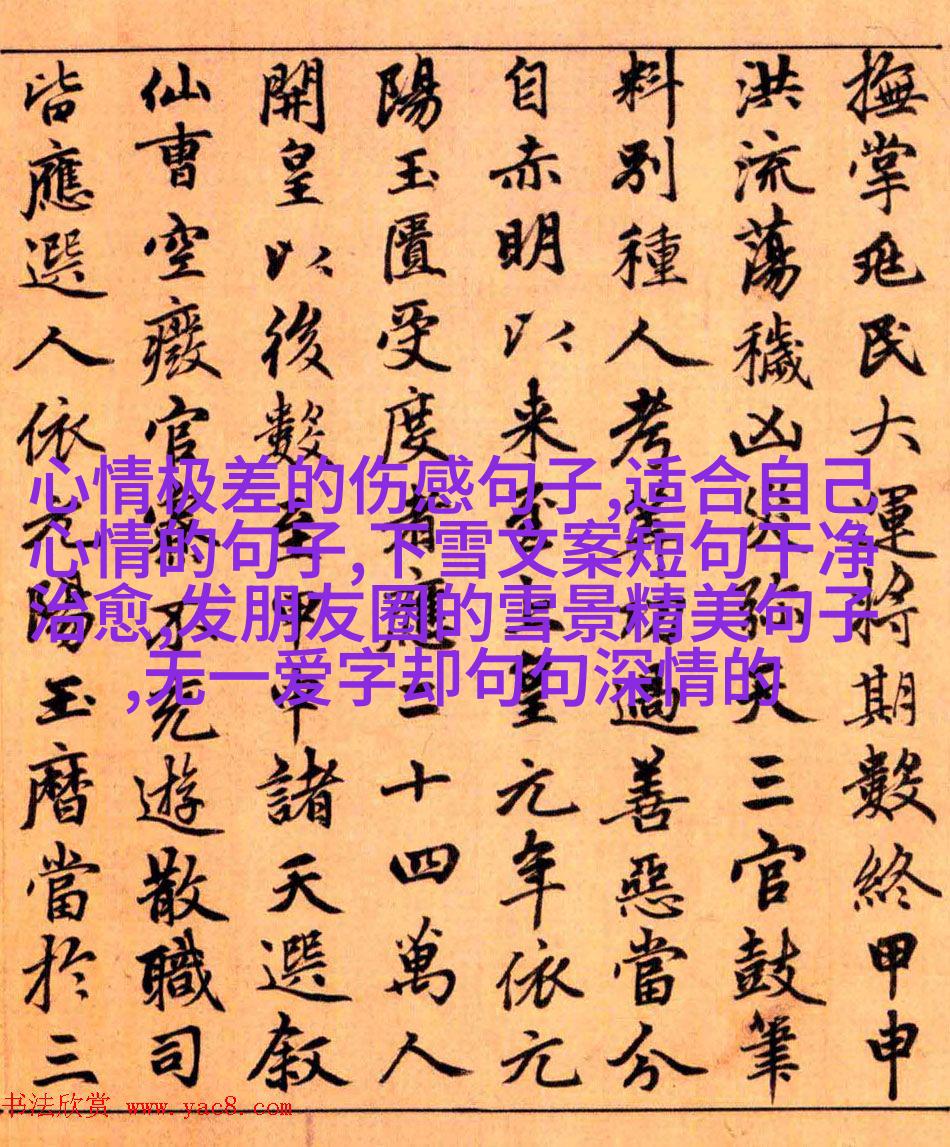 撫掌兆民大運將期數終甲申
洪流蕩穢凶災弥天三官鼓筆
料別種人考過善惡當分
自赤明以来至上皇元年依元
陽玉匱受度者應二十四萬人
開皇以後數至甲申諸天選叙
仙曹空廢官僚不充遊散職司
皆應選人依元陽玉曆當於三
心情极差的伤感句子,适合自己
心情的句子,下雪文案短句干净
治愈,发朋友圈的雪景精美句子
,无一爱字却句句深情的
书法欣赏 www.yac8.com